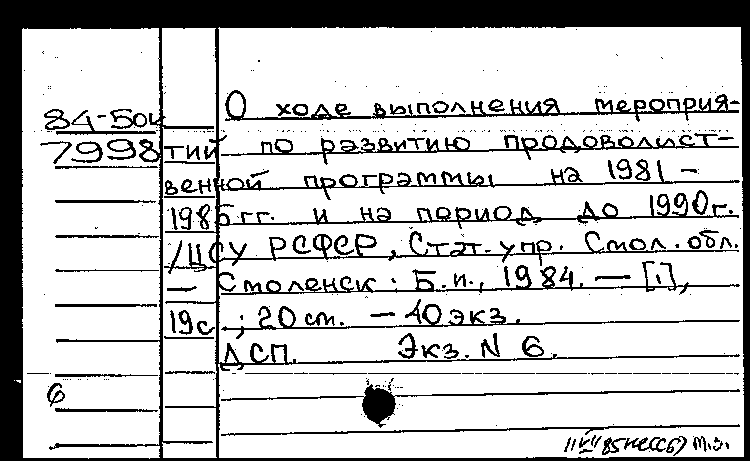 84-5ок
7998
О ходе выполнения мероприя-
тий по развитию продоволист-
венной программы на 1981 -
1985 гг. и на период до 1990 г.
/ЦСУ РСФСР, Стат. упр. Смол. обл.
— Смоленск: Б.и., 1984. — [1],
19с.; 20 см. — 40 экз.
ДСП. Экз. N 6.
6